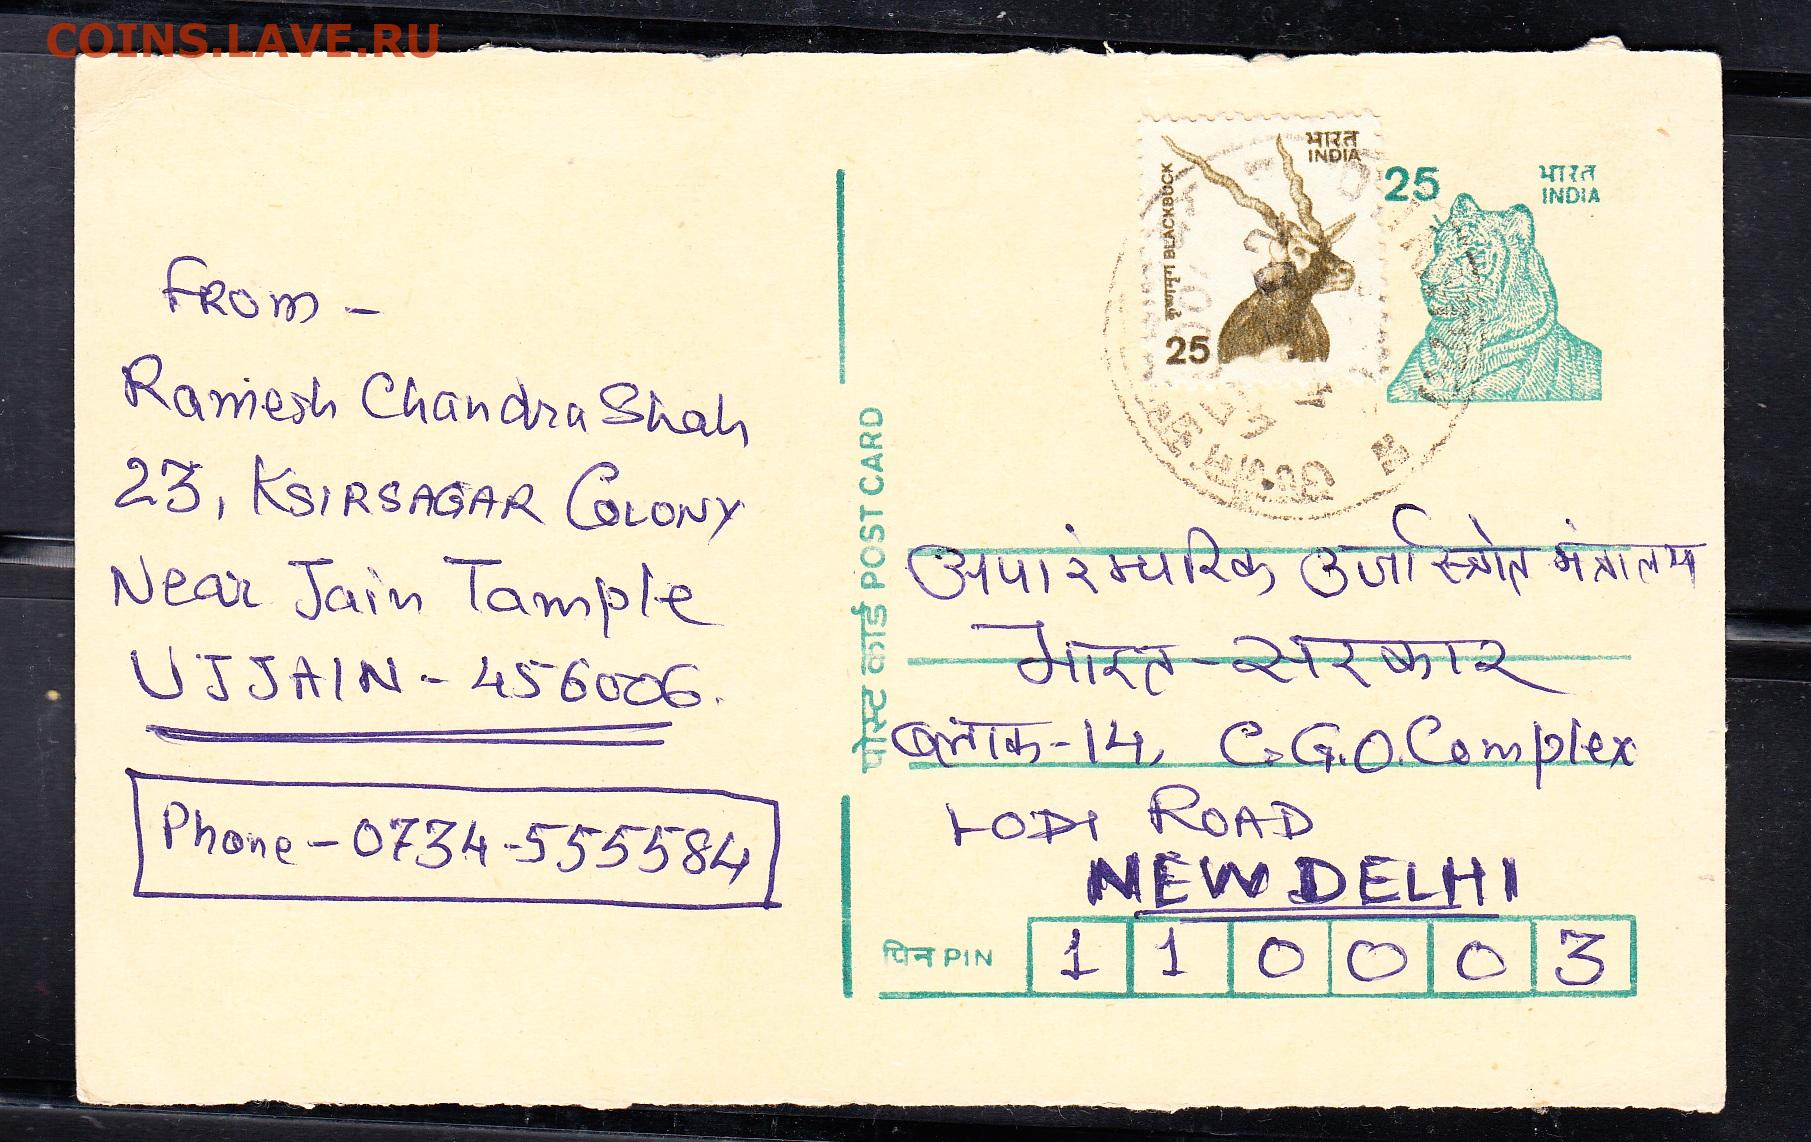 COINS.LAVE.RU
From -
Ramesh Chandra Shah
23, KSIRSAGAR COLONY
Near Jain Tample
UJJAIN - 456006.
Phone - 0734-555584
पोस्ट कार्ड POST CARD
भारत
INDIA
कृष्णमृग BLACKBUCK
25
25
भारत
INDIA
अपारंम्परिक उर्जा स्त्रोत मंत्रालय
भारत - सरकार
ब्लाक - 14, C.G.O. Complex
LODI ROAD
NEW DELHI
पिन PIN 1 1 0 0 0 3